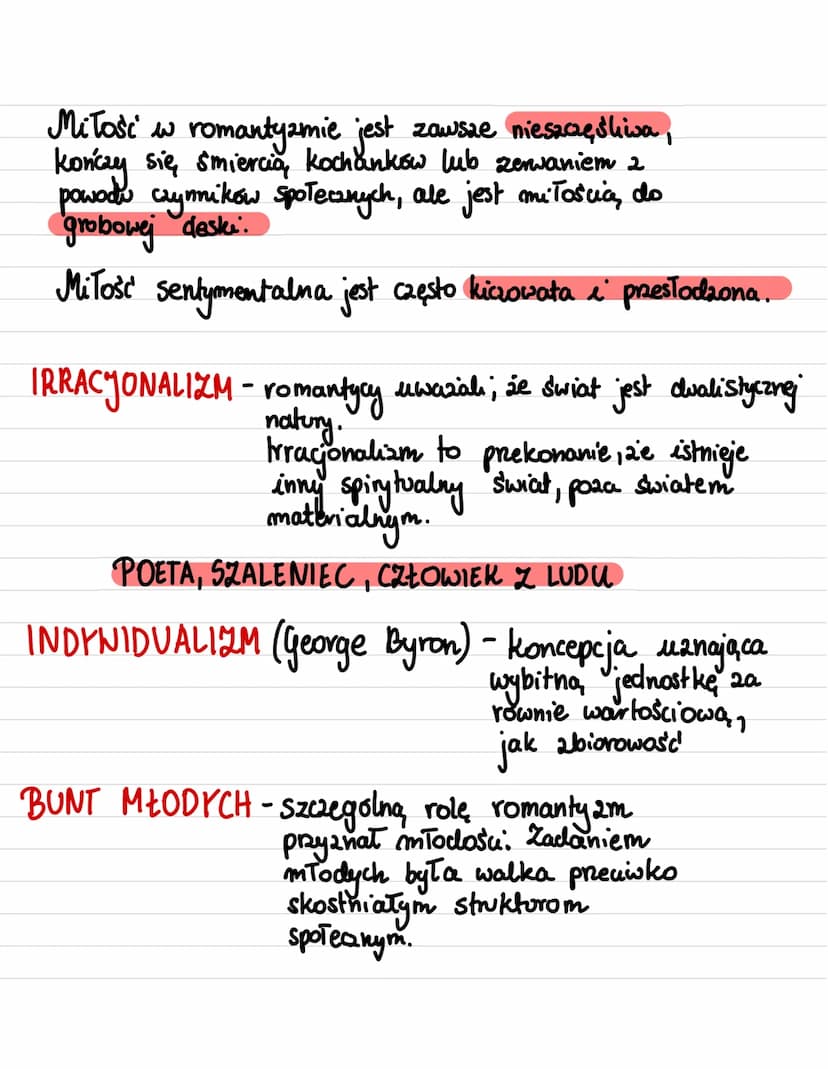 Miłość w romantyzmie jest zawsze nieszczęśliwa,
kończy się śmiercią kochanków lub zerwaniem z
powodu czynników społecznych, ale jest miłością do
grobowej deski.
Miłość sentymentalna jest często kiczowata i przesłodzona.
IRRACJONALIZM - romantycy uważali, że świat jest dualistycznej
natury.
Irracjonalizm to przekonanie, że istnieje
inny spirytualny świat, poza światem
materialnym.
POETA, SZALENIEC, CZŁOWIEK Z LUDU
INDYWIDUALIZM (George Byron) - koncepcja uznająca
wybitną jednostkę za
równie wartościową,
jak zbiorowość
BUNT MŁODYCH - szczególną rolę romantyzm
przyznał młodości. Zadaniem
młodych była walka przeciwko
skostniałym strukturom
społecznym.